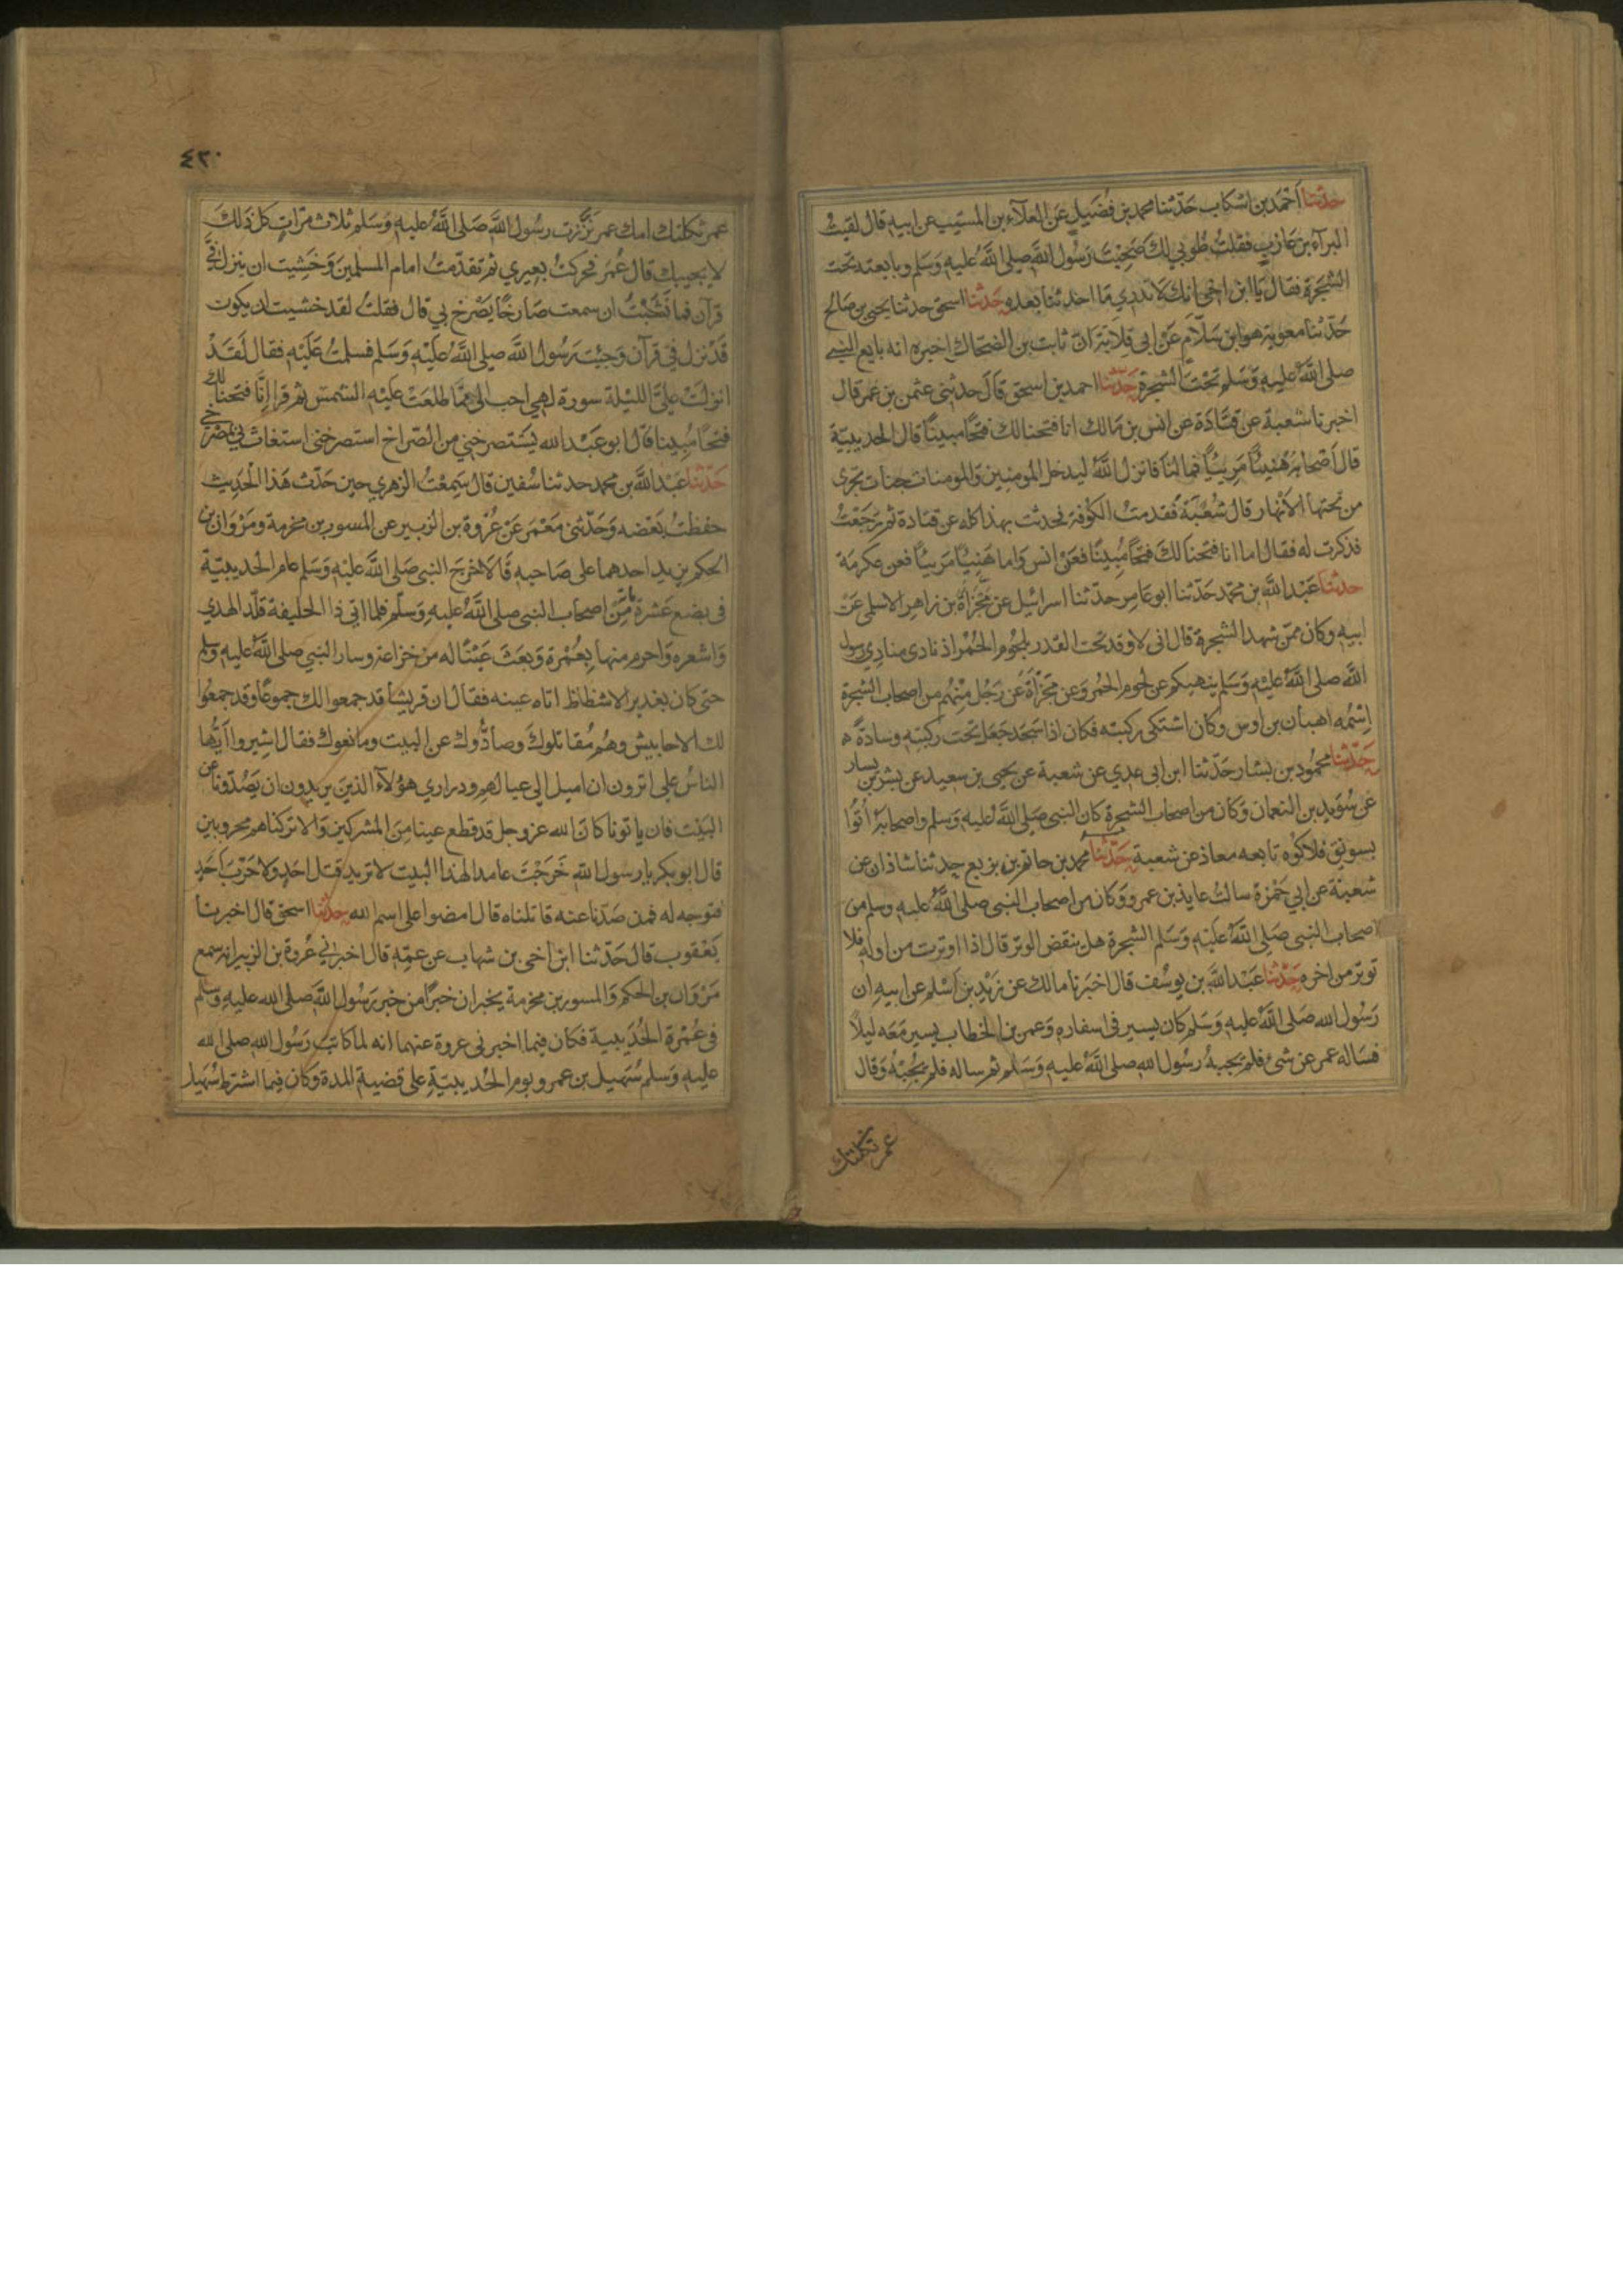 حدثنا احمد بن اشكاب حدثنا محمد بن فضيل عن العلآء بن المسيب عن ابيه قال لقيت
البرآء بن عازب فقلت طوبي لك صحبت رسول الله صلى الله عليه وسلم وبايعته تحت
الشجرة فقال يا ابن اخي انك لا تدري ما احدثنا بعده حدثنا اسحق حدثنا يحيى بن صالح
حدثنا معوية هو ابن سلام عن ابي قلابة ان ثابت بن الضحاك اخبره انه بايع النبي
صلى الله عليه وسلم تحت الشجرة حدثنا احمد بن اسحق قال حدثني عثمن بن عمر قال
اخبرنا شعبة عن قتادة عن انس بن مالك انا فتحنا لك فتحا مبينا قال الحديبية
قال اصحابه هنيئا مريئا فما لنا فانزل الله ليدخل المومنين والمومنات جنات تجرى
من تحتها الانهار قال شعبة فقدمت الكوفة فحدثت بهذا كله عن قتادة ثم رجعت
فذكرت له فقال اما انا فتحنا لك فتحا مبينا فعن انس واما هنيئا مريئا فعن عكرمة
حدثنا عبد الله بن محمد حدثنا ابو عامر حدثنا اسرائيل عن مجزاة بن زاهر الاسلمى عن
ابيه وكان ممن شهد الشجرة قال انى لاوقد تحت القدر بلحوم الحمر اذ نادى منادي رسول
الله صلى الله عليه وسلم ينهيكم عن لحوم الحمر وعن مجزأة عن رجل منهم من اصحاب الشجرة
اسمه اهبان بن اوس وكان اشتكى ركبته فكان اذا سجد جعل تحت ركبته وسادة
حدثنا محمود بن بشار حدثنا ابن ابى عدي عن شعبة عن يحيى بن سعيد عن بشر بن يسار
عن سويد بن النعمان وكان من اصحاب الشجرة كان النبى صلى الله عليه وسلم واصحابه أتوا
بسويق فلاكوه تابعه معاذ عن شعبة حدثنا محمد بن حاتم بن بزيع حدثنا شاذان عن
شعبة عن ابي حمزة سالت عايذ بن عمرو وكان من اصحاب النبى صلى الله عليه وسلم من
اصحاب النبى صلى الله عليه وسلم الشجرة هل ينقض الوتر قال اذا اوترت من اوله فلا
توتر من اخره حدثنا عبد الله بن يوسف قال اخبرنا مالك عن زيد بن اسلم عن ابيه ان
رسول الله صلى الله عليه وسلم كان يسير فى اسفاره وعمر بن الخطاب يسير معه ليلا
فساله عمر عن شىء فلم يجبه رسول الله صلى الله عليه وسلم ثم ساله فلم يجبه وقال
عمر ثكلتك
٤٢٠
عمر ثكلتك امك عمر نزرت رسول الله صلى الله عليه وسلم ثلاث مرات كل ذلك
لا يجيبك قال عمر فحركت بعيري ثم تقدمت امام المسلمين وخشيت ان ينزل فيّ
قرآن فما نشبت ان سمعت صارخا يصرخ بي قال فقلت لقد خشيت ان يكون
قد نزل في قرآن وجئت رسول الله صلى الله عليه وسلم فسلمت عليه فقال لقد
انزلت علي الليلة سورة لهي احب الى مما طلعت عليه الشمس ثم قرا انا فتحنا لك
فتحا مبينا قال ابو عبد الله يستصرخني من الصراخ استصرخنى استغاث بى
حدثنا عبد الله بن محمد حدثنا سفين قال سمعت الزهري حين حدث هذا الحديث
حفظت بعضه وحدثنى معمر عن عروة بن الزبير عن المسور بن مخرمة ومروان بن
الحكم يزيد احدهما على صاحبه قالا خرج النبى صلى الله عليه وسلم عام الحديبية
فى بضع عشرة مائة من اصحاب النبى صلى الله عليه وسلم فلما اتى ذا الحليفة قلد الهدي
واشعره واحرم منها بعمرة وبعث عينا له من خزاعة وسار النبى صلى الله عليه وسلم
حتى كان بغدير الاشظاظ اتاه عينه فقال ان قريشا قد جمعوا لك جموعا وقد جمعوا
لك الاحابيش وهم مقاتلوك وصادوك عن البيت ومانعوك فقال اشيروا ايها
الناس على اترون ان اميل الى عيالهم وذراري هؤلآء الذين يريدون ان يصدونا عن
البيت فان ياتونا كان الله عز وجل قد قطع عينا من المشركين والا تركناهم محروبين
قال ابو بكر يا رسول الله خرجت عامدا لهذا البيت لا تريد قتل احد ولا حرب احد
فتوجه له فمن صدنا عنه قاتلناه قال امضوا على اسم الله حدثنا اسحق قال اخبرنا
يعقوب قال حدثنا ابن اخى بن شهاب عن عمه قال اخبرانى عروة بن الزبير انه سمع
مروان بن الحكم والمسور بن مخرمة يخبران خبرا من خبر رسول الله صلى الله عليه وسلم
فى عمرة الحديبية فكان فيما اخبرنى عروة عنهما انه لما كاتب رسول الله صلى الله
عليه وسلم سهيل بن عمرو يوم الحديبية على قضية المدة وكان فيما اشترط سهيل